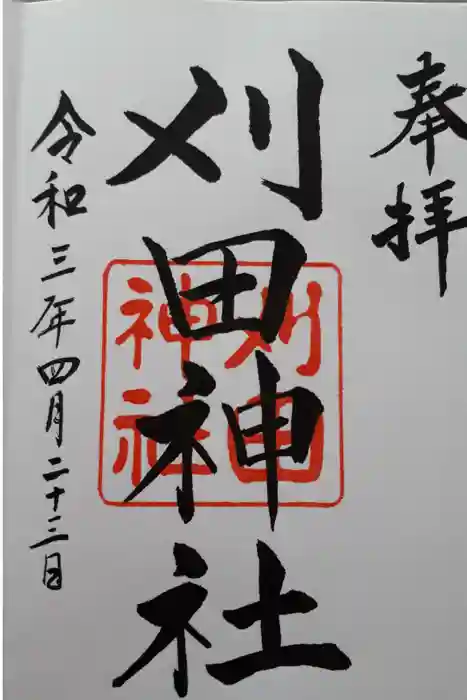 奉拝
刈田神社
刈田
神社
令和三年四月二十三日